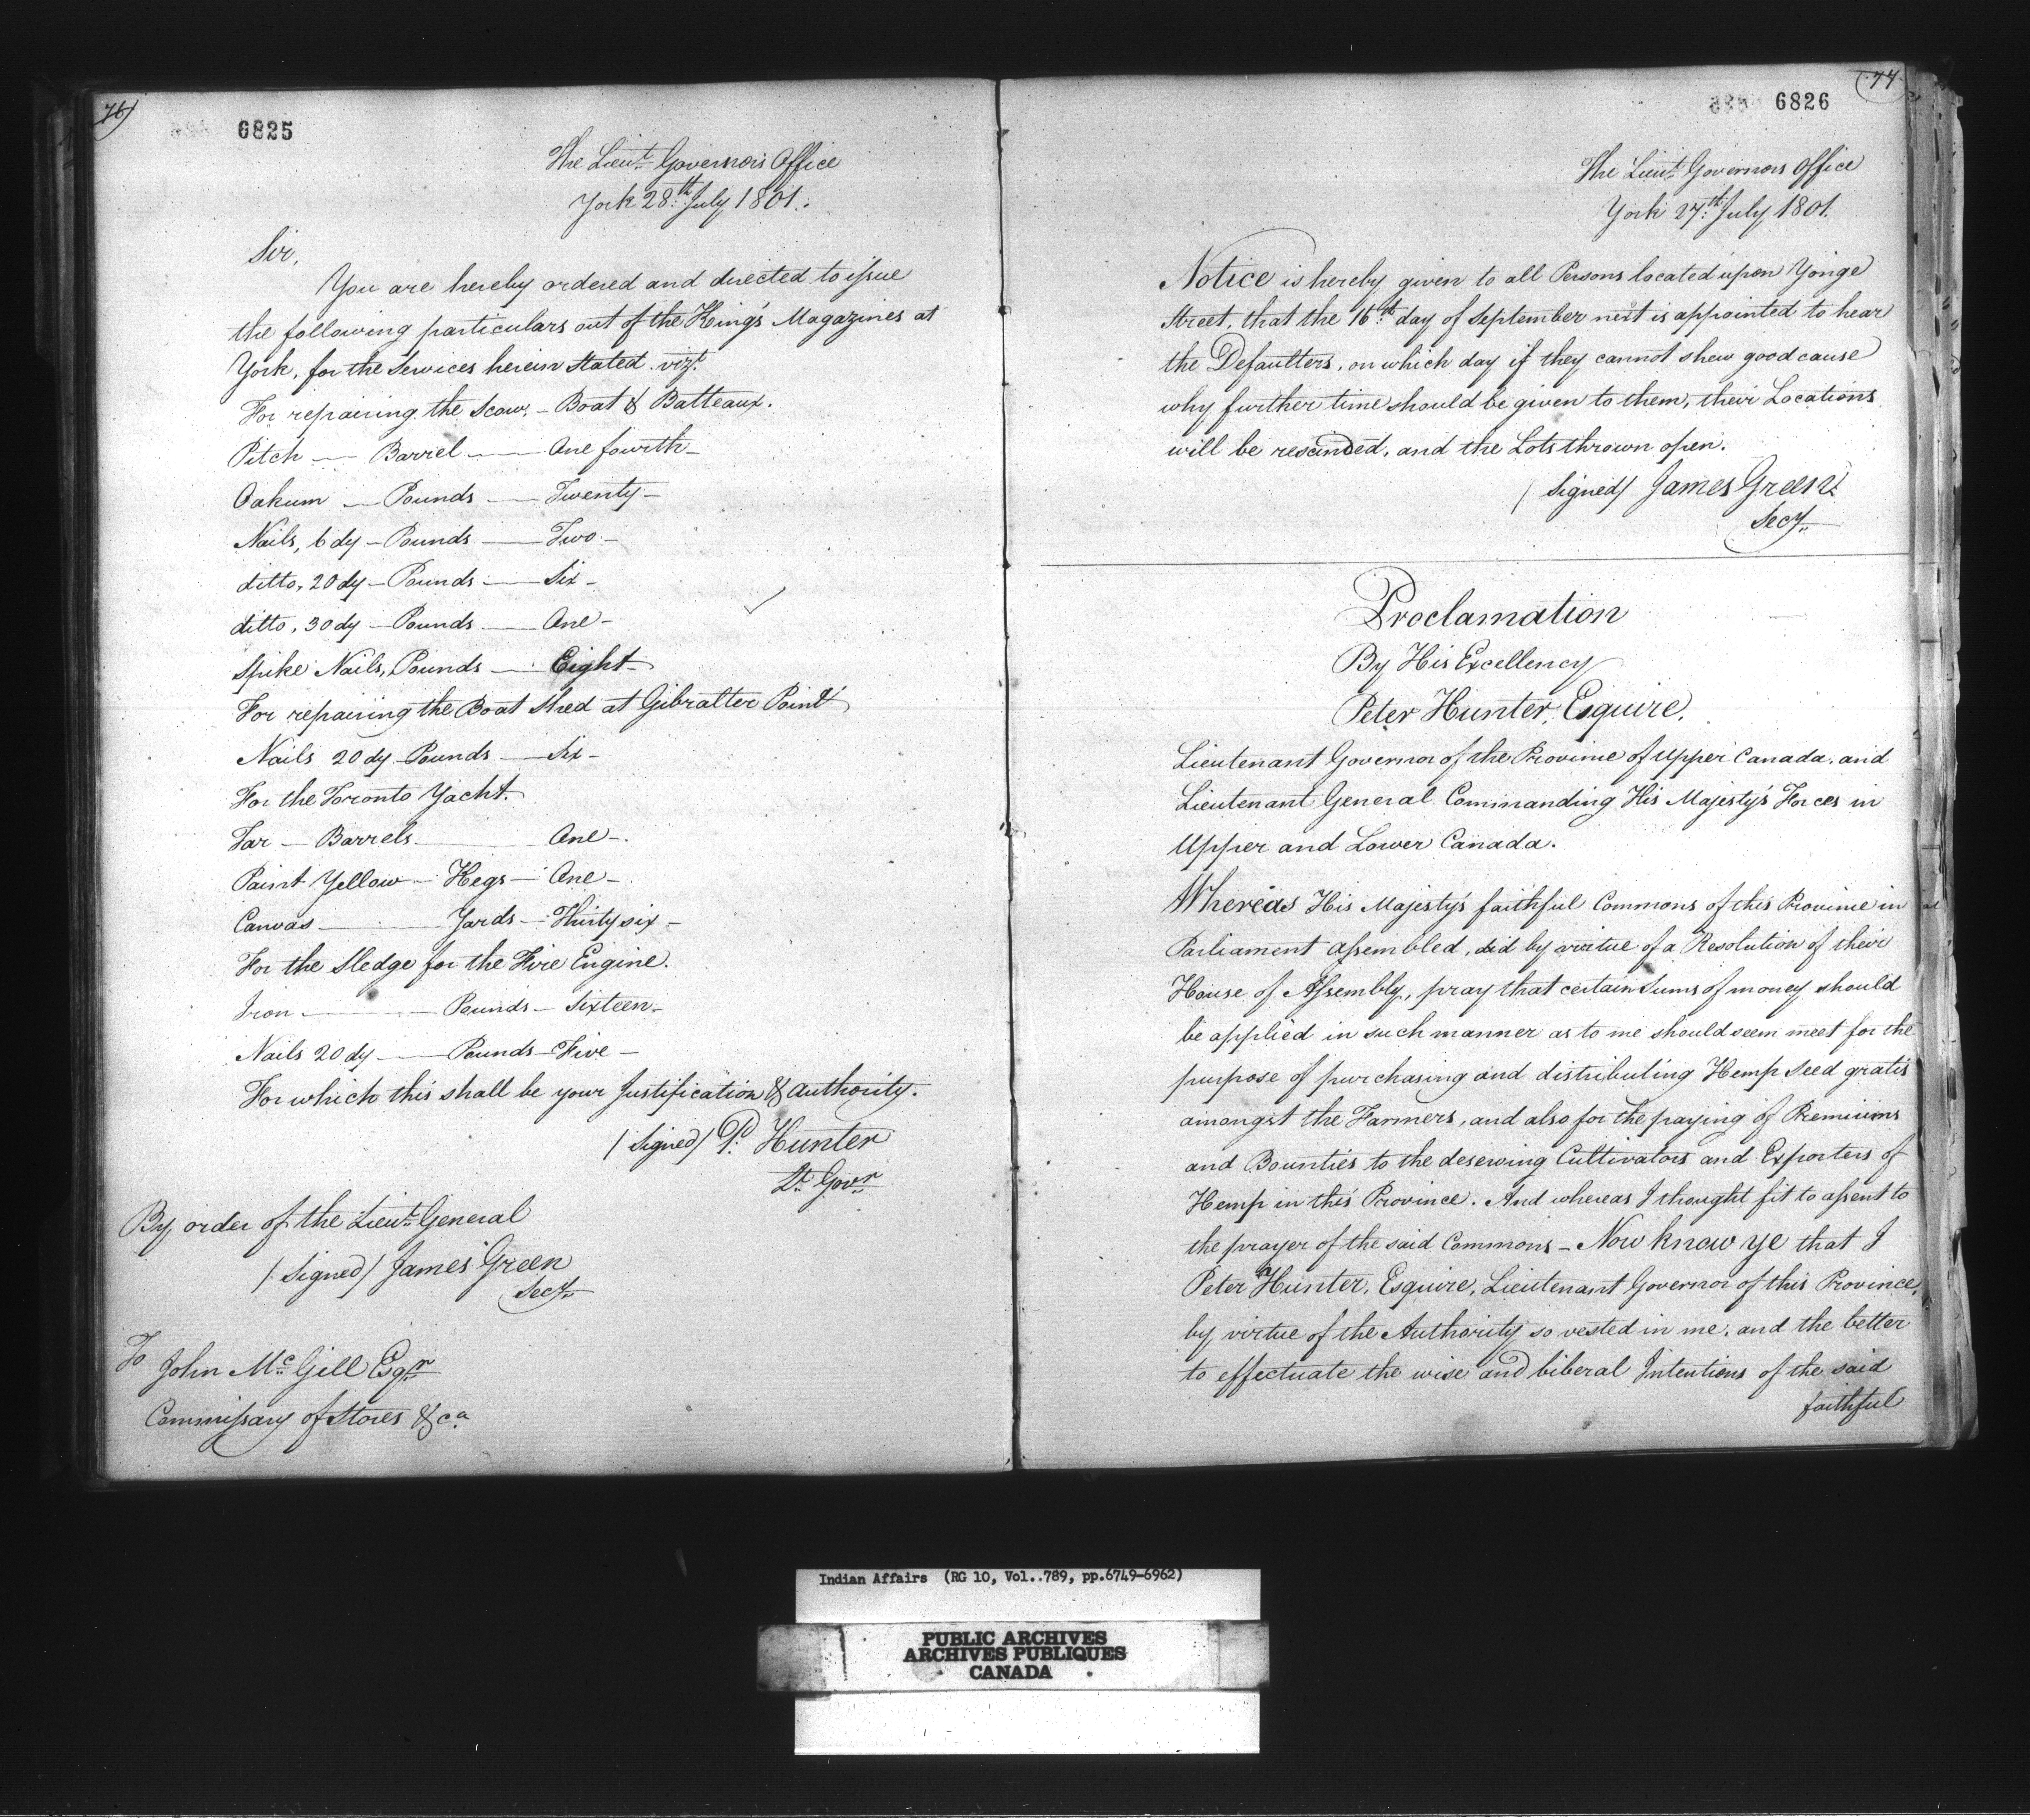 76
6825
The Lieut. Governor's Office
York 28th July 1801.
Sir,
You are hereby ordered and directed to issue
the following particulars out of the King's Magazines at
York, for the Services herein stated. vizt.
For repairing the Scow, - Boat & Batteaux.
Pitch - Barrel - One fourth -
Oakum - Pounds - Twenty -
Nails, 6 dy - Pounds - Two -
ditto, 20 dy - Pounds - Six -
ditto, 30 dy - Pounds - One -
Spike Nails, Pounds - Eight -
For repairing the Boat Shed at Gibralter Point
Nails 20 dy Pounds - Six -
For the Toronto Yacht.
Tar - Barrels - One -
Paint Yellow - Kegs - One -
Canvas - Yards - Thirty six -
For the Sledge for the Fire Engine.
Iron - Pounds - Sixteen -
Nails 20 dy - Pounds - Five -
For which this shall be your Justification & Authority.
/Signed/ P. Hunter
Lt. Govr.
By order of the Lieut. General
/Signed/ James Green
Secy.
To
John McGill Esqr.
Commissary of Stores &ca.
77
6826
The Lieut. Governors Office
York 27th July 1801.
Notice is hereby given to all Persons located upon Yonge
Street, that the 16th day of September next is appointed to hear
the Defaulters, on which day if they cannot shew good cause
why further time should be given to them, their Locations
will be rescinded, and the Lots thrown open.
/Signed/ James Green
Secy.
Proclamation
By His Excellency
Peter Hunter, Esquire,
Lieutenant Governor of the Province of Upper Canada, and
Lieutenant General Commanding His Majesty's Forces in
Upper and Lower Canada.
Whereas His Majesty's faithful Commons of this Province in
Parliament assembled, did by virtue of a Resolution of their
House of Assembly, pray that certain Sums of money should
be applied in such manner as to me should seem meet for the
purpose of purchasing and distributing Hemp Seed gratis
amongst the Farmers, and also for the paying of Premiums
and Bounties to the deserving Cultivators and Exporters of
Hemp in this Province. And whereas I thought fit to assent to
the prayer of the said Commons - Now know ye that I
Peter Hunter, Esquire, Lieutenant Governor of this Province,
by virtue of the Authority so vested in me, and the better
to effectuate the wise and liberal Intentions of the said
faithful
Indian Affairs (RG 10, Vol..789, pp.6749-6962)
PUBLIC ARCHIVES
ARCHIVES PUBLIQUES
CANADA